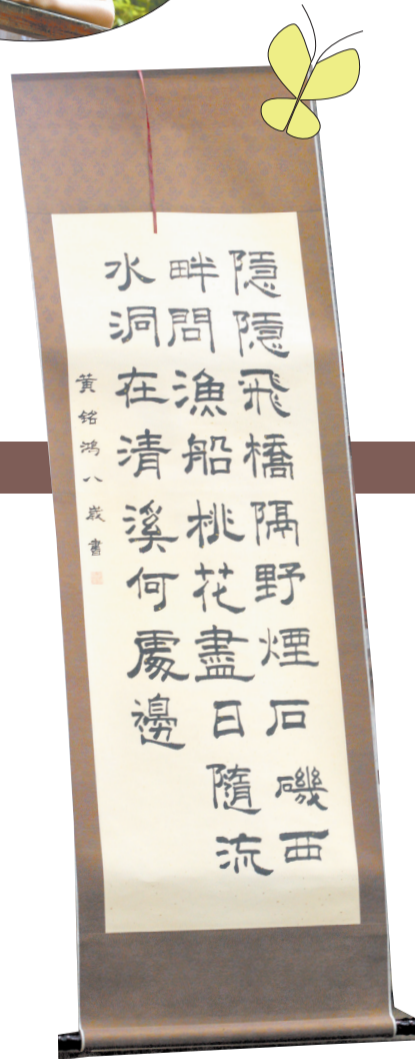 隱隱飛橋隔野煙石磯西
畔問漁船桃花盡日隨流
水洞在清溪何處邊
黃銘鴻八歲書